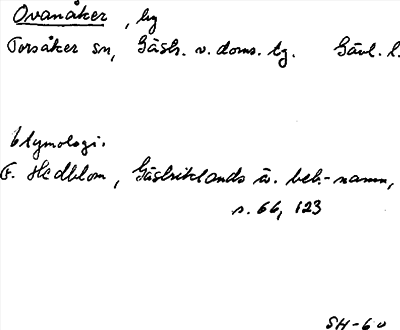 Ovanåker, by
Torsåker sn, Gästr. v. doms. tg. Gävl. l.
Etymologi.
F. Hedblom, Gästriklands ä. beb.-namn,
s. 66, 123
SH-60